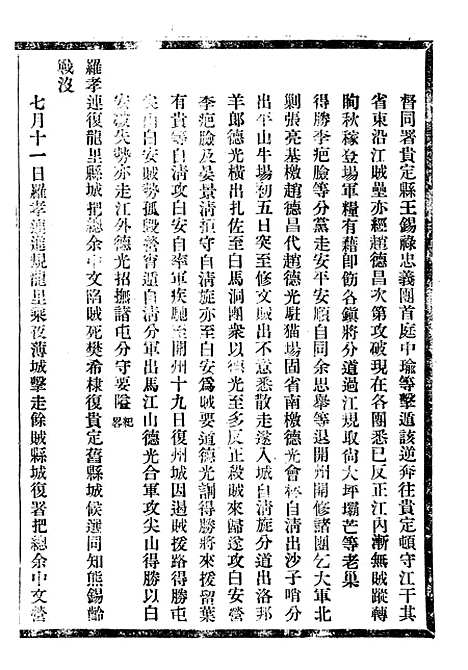 督同署貴定縣王錫祿忠義團首庭中瑜等擊遁該逆奔往貴定頓守江干其
省東沿江賊壘亦經趙德昌次第攻破現在各團悉已反正江內漸無賊蹤轉
眴秋稼登場軍糧有藉即飭各鎮將分道過江規取尙大坪壩芒等老巢
得勝李疤臉等分黨走安平安順自同余思舉等退開州開修諸團乞大軍北
剿張亮基檄趙德昌代趙德光駐猫場固省南檄德光會林自清出沙子哨分
出平山牛場初五日突至修文賊出不意悉散走遂入城自清旋分道出洛邦
羊郎德光橫出扎佐至白馬洞團衆以德光至多反正殺賊來歸遂攻白安營
李疤臉及吳景清預守自清旋亦至白安爲賊要道德光調得勝來援留葉
有貴等自清攻白安自率軍疾馳至開州十九日復州城因遏賊援路得勝屯
尖山白安賊勢孤毀營宵遁自清分軍出馬江山德光合軍攻尖山得勝以白
安旣失勢亦走江外德光招撫諸屯分守要隘紀略
羅孝連復龍里縣城把總余中文陷賊死樊希棣復貴定舊縣城候選同知熊錫齡
戰沒
七月十一日羅孝連進規龍里乘夜薄城擊走餘賊縣城復署把總余中文營